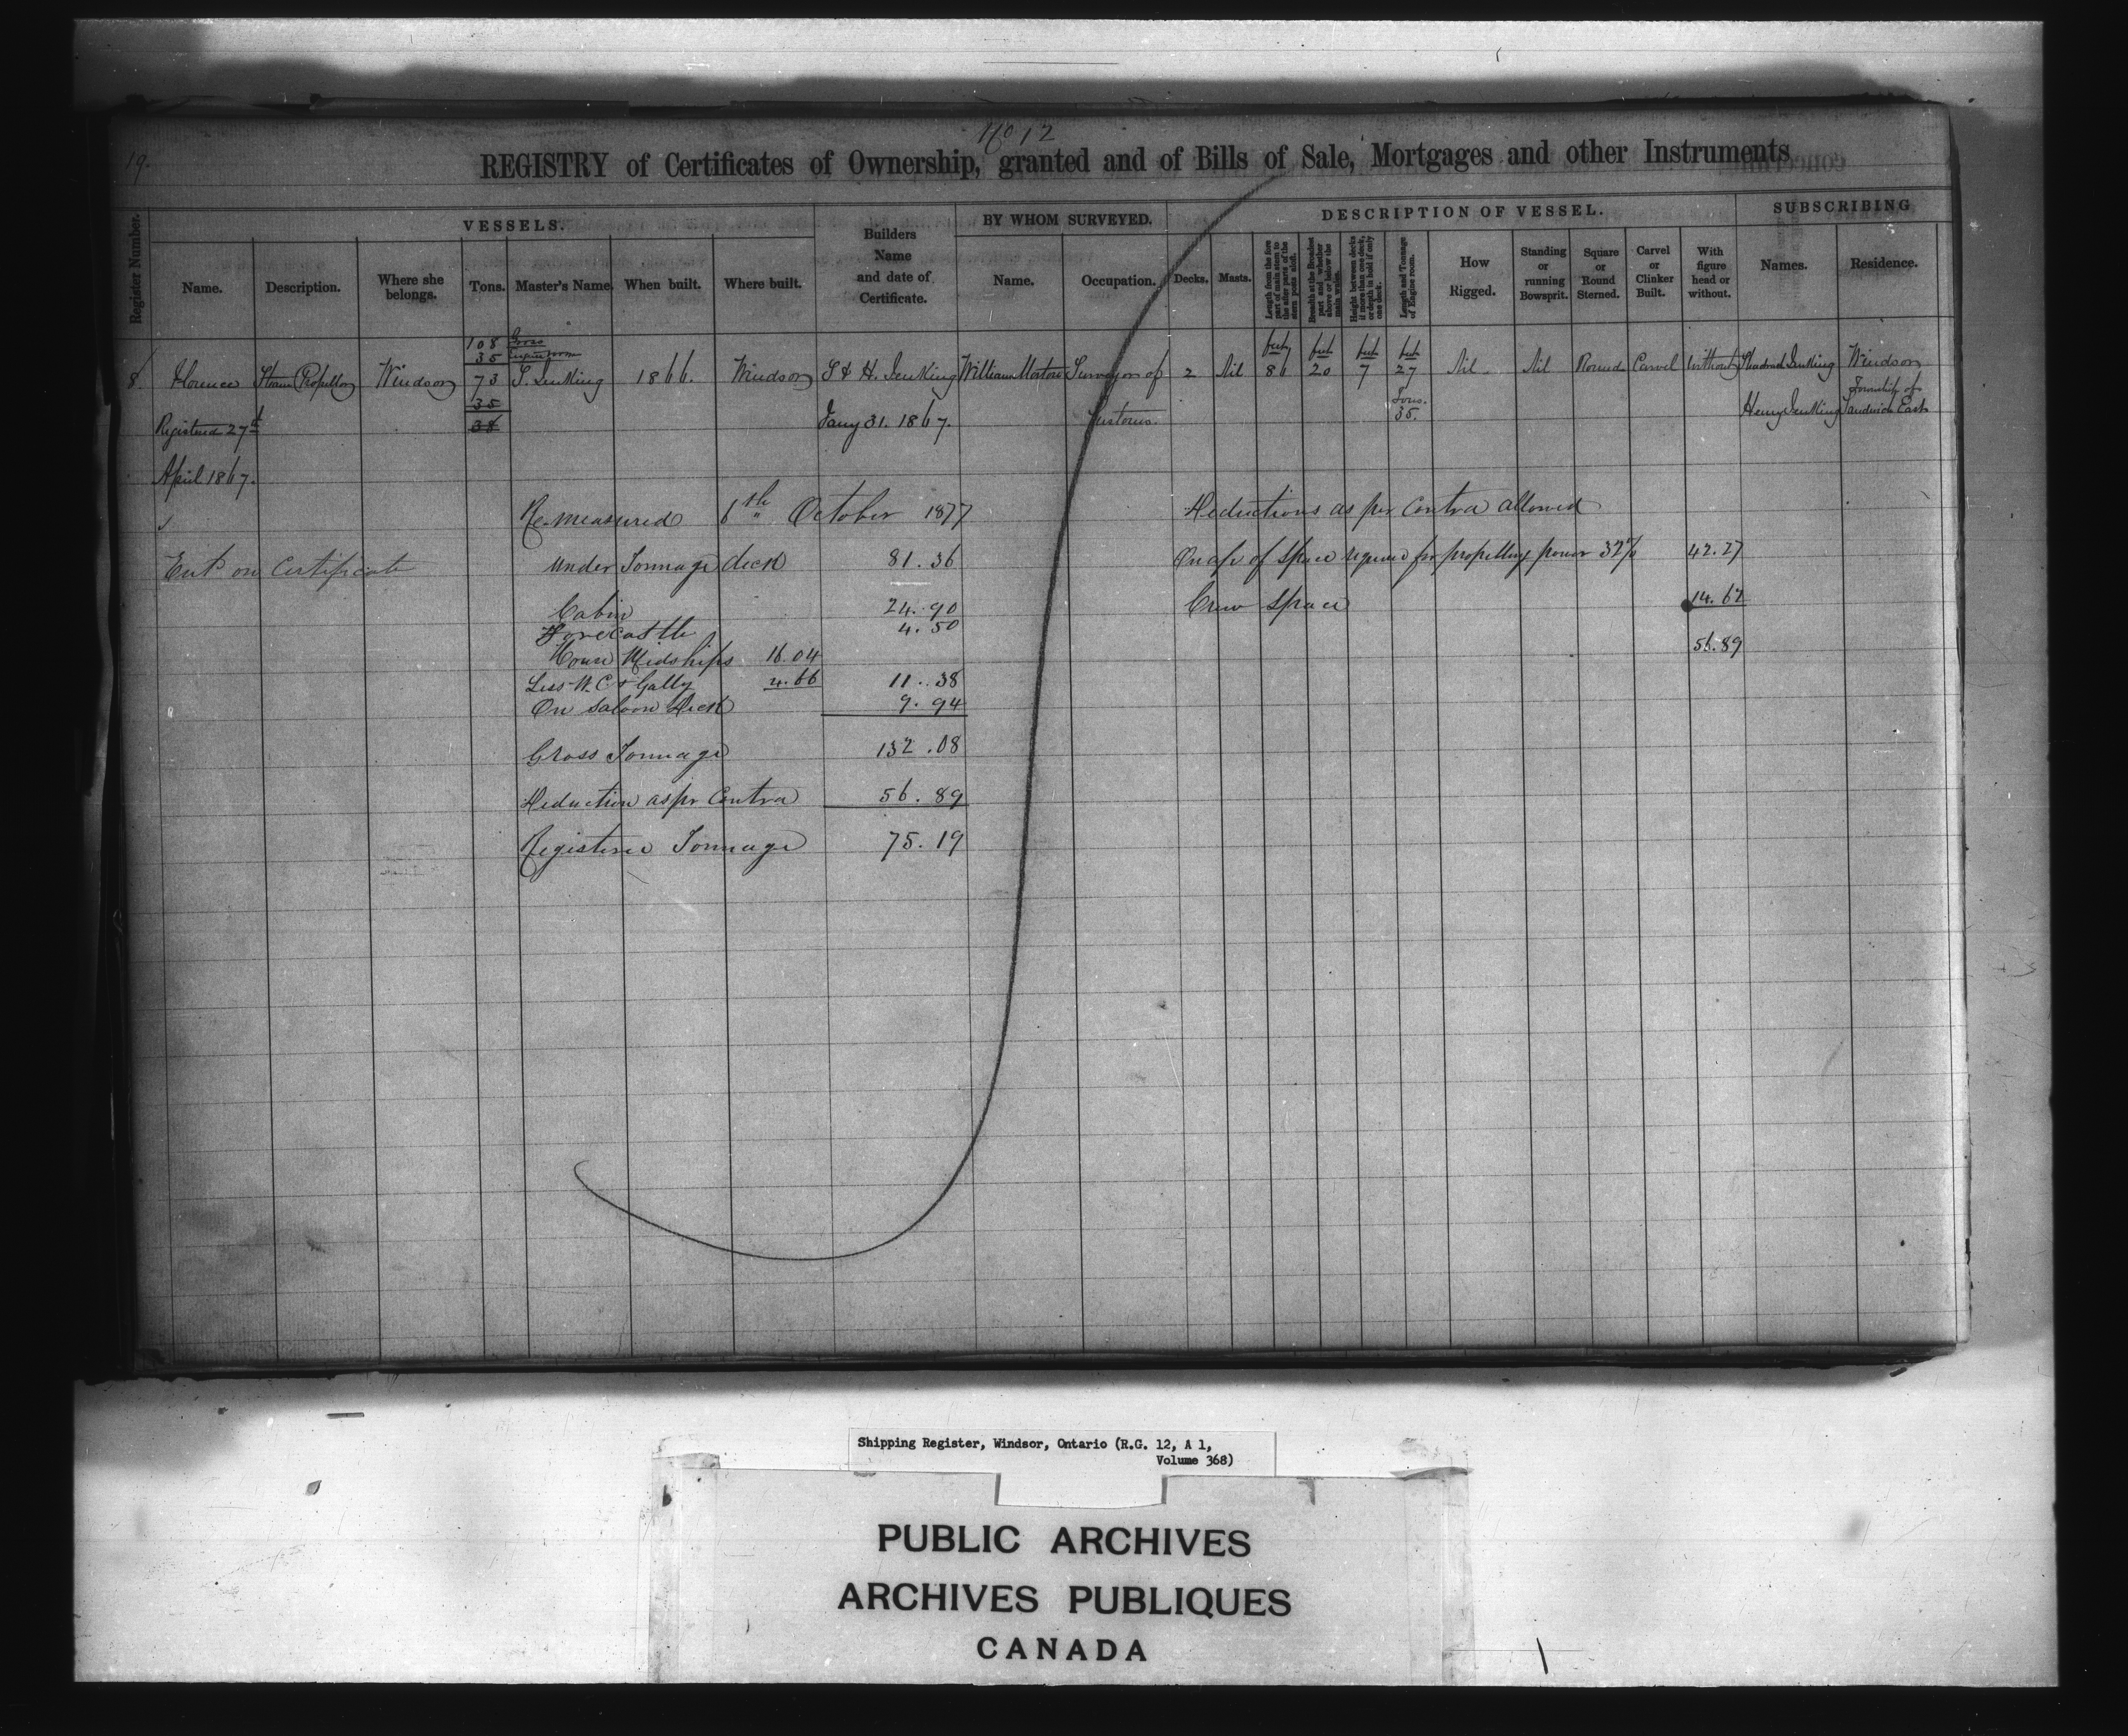 No 12
19.
REGISTRY of Certificates of Ownership, granted and of Bills of Sale, Mortgages and other Instruments
Register Number.
VESSELS.
Name.
Description.
Where she belongs.
Tons.
Master's Name
When built.
Where built.
Builders Name and date of Certificate.
BY WHOM SURVEYED.
Name.
Occupation.
DESCRIPTION OF VESSEL.
Decks.
Masts.
Length from the fore part of main stem to the after parts of the stern posts aloft.
Breadth at the Broadest part and whether above or below the main wales.
Height between decks if more than one deck, or depth in hold if only one deck.
Length and Tonnage of Engine room.
How Rigged.
Standing or running Bowsprit.
Square or Round Sterned.
Carvel or Clinker Built.
With figure head or without.
SUBSCRIBING
Names.
Residence.
108 Gross
35 Engine room
feet feet feet feet
8. Florence Steam Propellor Windsor 73 S. Jenking 1866. Windsor S & H. Jenking William Morton Surveyor of 2 Nil 86 20 7 27 Nil Nil Round Carvel Without Shadrach Jenking Windsor
35 Tons. Township of
Registered 27th 38 Jany 31. 1867. Customs. 35. Henry Jenking Sandwich East
April 1867.
Re-measured 6th October 1877 Deductions as per Contra allowed
Ent on Certificate Under Tonnage deck 81.36 On a/c of space required for propelling power 32% 42.27
Cabin 24.90 Crew Space 14.62
Forecastle 4.50
56.89
House Midships 16.04
Less W.C & Gally 4.66 11.38
On Saloon Deck 9.94
Gross Tonnage 132.08
Deduction as pr Contra 56.89
Registered Tonnage 75.19
Shipping Register, Windsor, Ontario (R.G. 12, A 1,
Volume 368)
PUBLIC ARCHIVES
ARCHIVES PUBLIQUES
CANADA